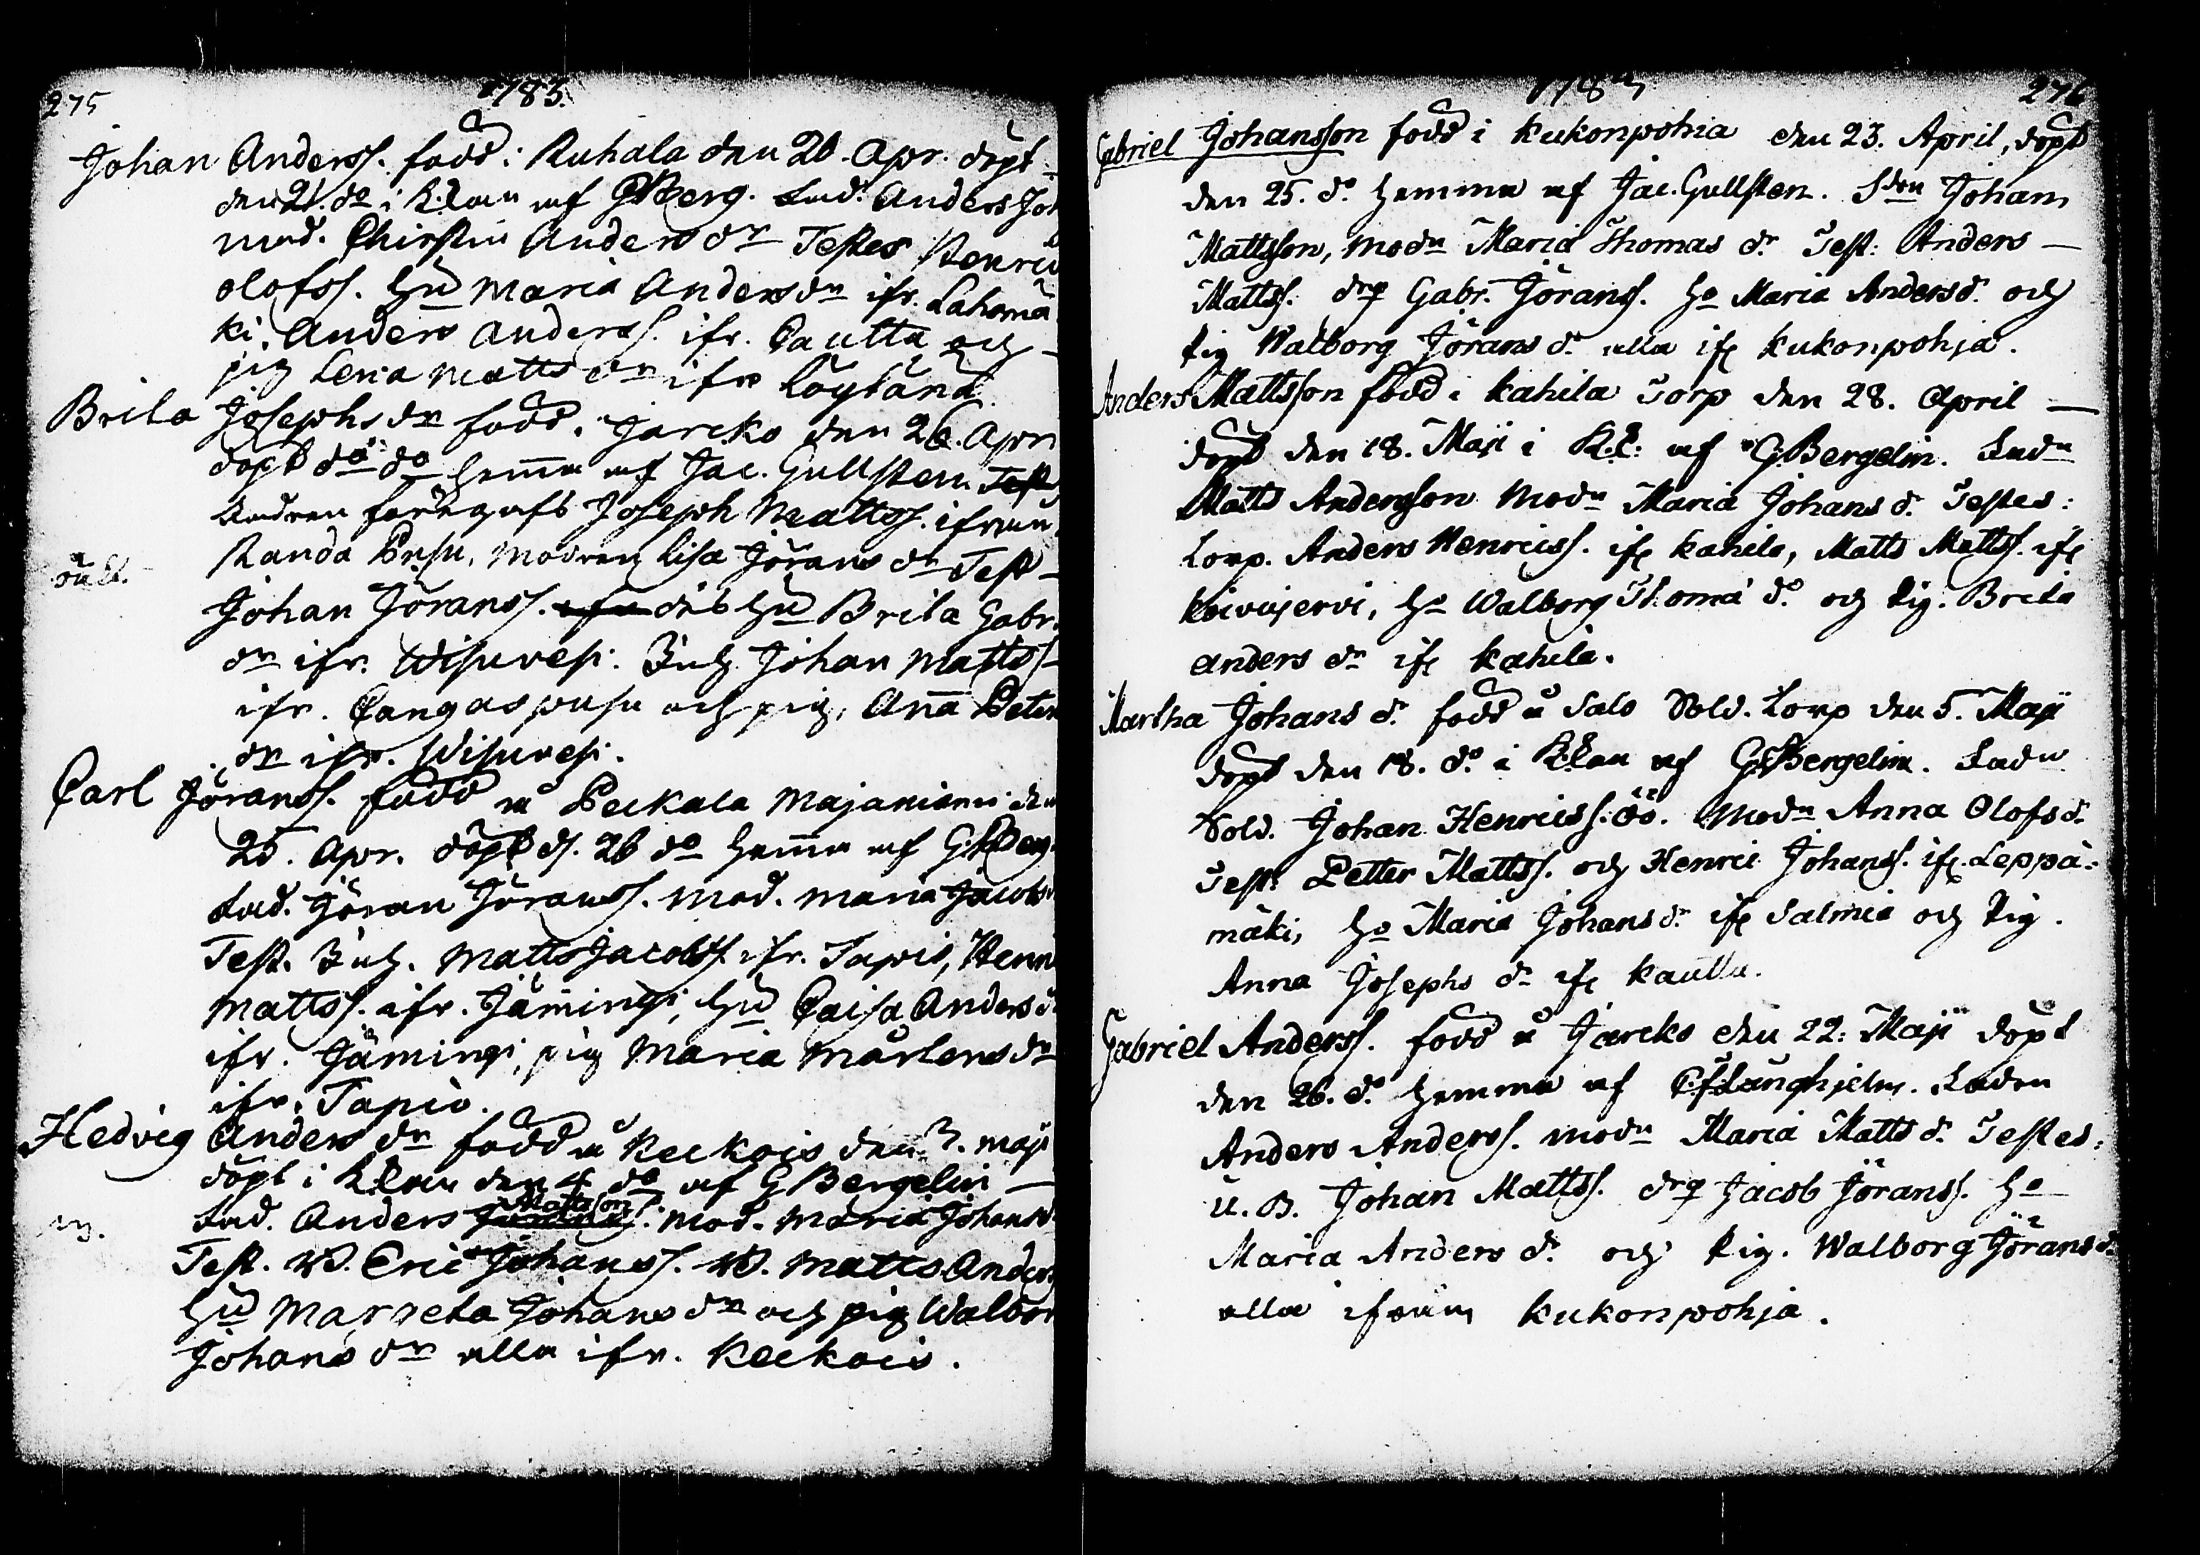 275
1783.
Johan Anderss. född i Ruhala den 20. Apr. döpt
den 21. do i K:kan af GBerg. Fad. Anders Joh
mod. Chirstin Anders dr Testes Henric
Olofss. hu Maria Anders dr ifr. Lahomä
ki, Anders Anderss. ifr. Cautta och
pig Lena Matts dr ifr Löytänä.
Brita Josephs dr född i Jarcko den 26. Apr
döpt do do hema af Jac. Gullsten. Test
fadren föregafs Joseph Mattss. ifrån
Randa Pusu, modren Lisa Jörans dr Test
oäkt.
Johan Jöranss. dib hu Brita Gabr.
dr ifr. Wisuvesi. Johan Mattss
ifr. Cangaspusu och pig. Ana Peters
dr ifr. Wisuvesi.
Carl Jöranss. född å Peckala Majaniemi den
25. Apr. döpt d. 26 do hema af G.Berg.
Fad. Jöran Jöranss. Mod. Maria Jacobs
Test. Matts Jacobss. ifr. Tapio, Henr
Mattss. ifr. Jämingi, hu Caisa Anders d
ifr. Jämingi, pig Maria Mårtens dr
ifr. Tapio.
Hedvig Anders dr född å Keckois den 3. Maji
döpt i K:kan den 4 do af GBergelin
Mattsson
Fad. Anders Mod. Maria Johans d
Test. B. Eric Johanss. B. Matts Anders
hu Margeta Johans dr och pig Walbor
Johans dr alla ifr. Keckois.
276
Gabriel Johansson född i Kukonpohia den 23. April, döpt
den 25. do hemma af Jac. Gullsten. Fdrn Johan
Mattsson, modn Maria Thomas dr Test: Anders
Mattss. drg Gabr. Jöranss. ho Maria Anders d. och
Pig Walborg Jörans dr alla ifr Kukonpohja.
Anders Mattsson född i Kahila Torp den 28. April
döpt den 18. Maji i K.k: af G.Bergelin. Fadn
Matts Andersson Modn Maria Johans d. Testes:
Torp. Anders Henricss. ifr Kahila, Matts Mattss. ifr
Koivujervi, ho Walborg Thoma d. och Pig. Brita
Anders dr ifr Kahila.
Martha Johans d. född å Salo Sold. Torp den 5. Maji
döpt den 18. do i K:kan af G.Bergelin. Fadn
Sold. Johan Henricss. Öö. Modn Anna Olofs d.
Test: Petter Mattss. och Henric Johanss. ifr. Leppä-
mäki, ho Maria Johans dr ifr Salmia och Pig.
Anna Josephs dr ifr Kautta.
Gabriel Anderss. född å Jarcko den 22: Maji döpt
den 26. do hemma af C.f.Langhjelm. Fadrn
Anders Anderss. modn Maria Matts d. Testes:
U. B. Johan Mattss. drg Jacob Jöranss. ho
Maria Anders d. och Pig. Walborg Jörans d.
alla ifrån Kukonpohja.